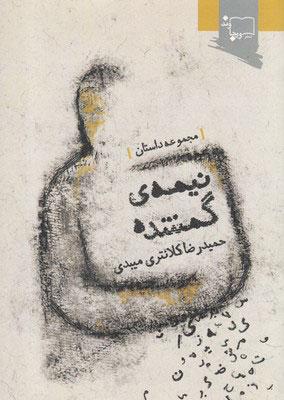 مجموعه داستان
نیمه‌ی
گمشده
حمیدرضا کلانتری میبدی